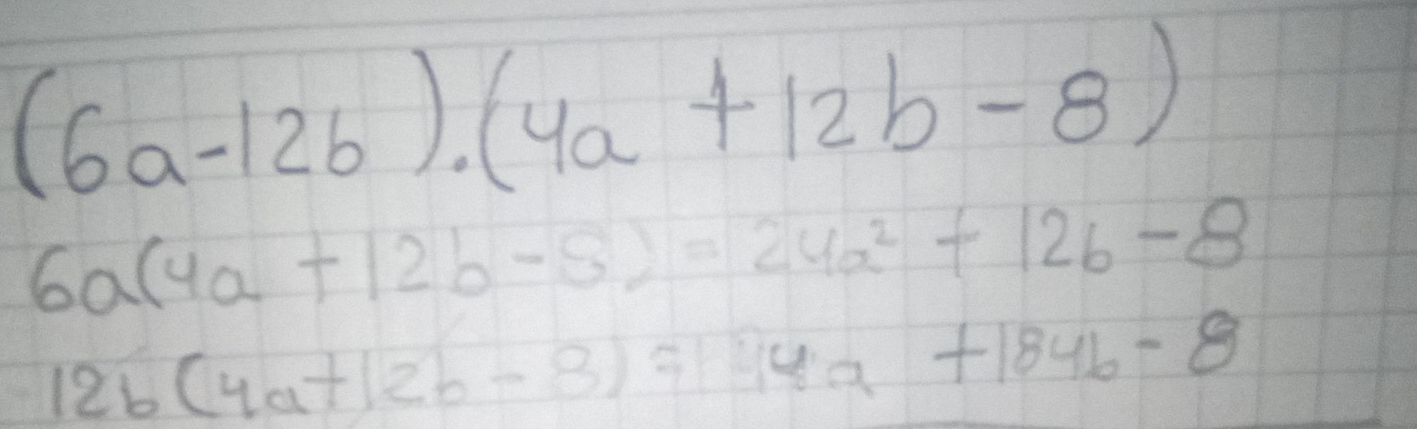 (6a-12b).(4a+12b-8)
6a(4a+12b-8)=24a²+12b-8
12b(4a+12b-8)= 4a+184b-8